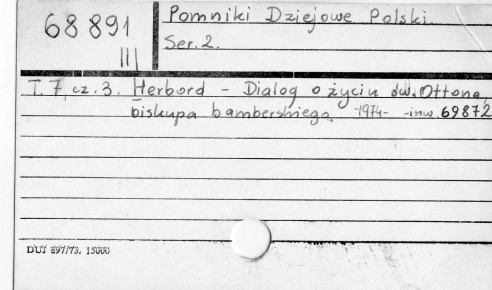 68891
III
Pomniki Dziejowe Polski.
Ser. 2.
T. 7, cz. 3. Herbord - Dialog o życiu św. Ottona,
biskupa bamberskiego -1974- -inw. 69872
DUJ 897/73. 15000